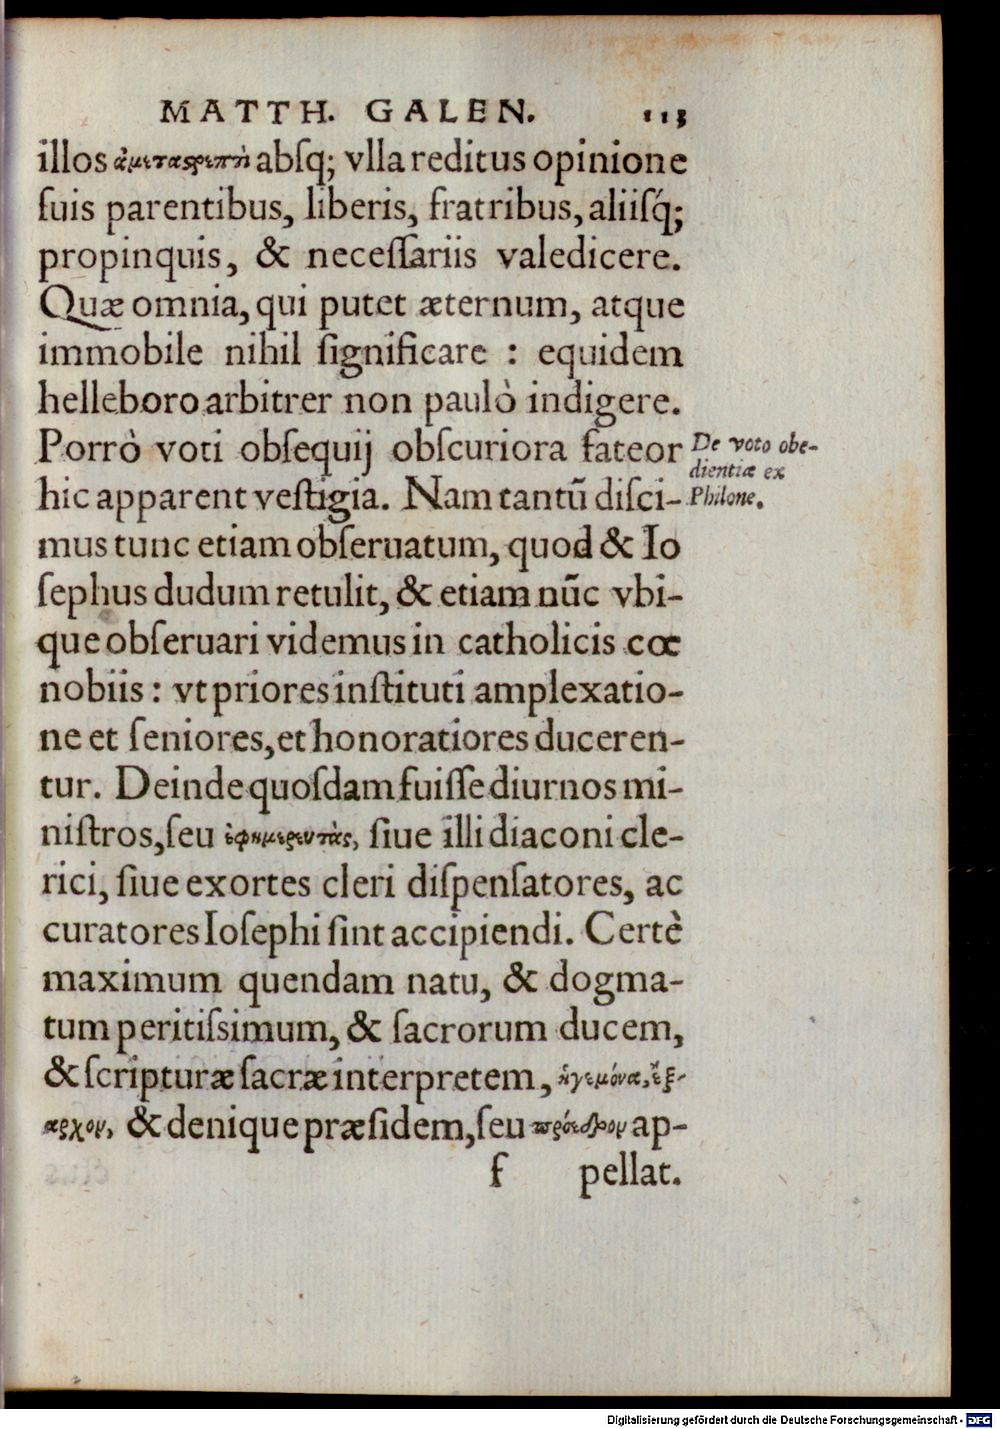 MATTH. GALEN. 113
illos ἀμεταςρεπτὴ absq; vlla reditus opinione
ſuis parentibus, liberis, fratribus, aliiſq́;
propinquis, & neceſſariis valedicere.
Quæ omnia, qui putet æternum, atque
immobile nihil ſignificare : equidem
helleboro arbitrer non paulò indigere.
Porrò voti obſequij obſcuriora fateor
De voto obe-
dientiæ ex
Philone.
hic apparent veſtigia. Nam tantũ diſci-
mus tunc etiam obſeruatum, quod & Io
ſephus dudum retulit, & etiam nũc vbi-
que obſeruari videmus in catholicis cœ
nobiis : vt priores inſtituti amplexatio-
ne et ſeniores, et honoratioresduceren-
tur. Deinde quoſdam fuiſſe diurnos mi-
niſtros, ſeu ἐφημερευτὰς, ſiue illi diaconi cle-
rici, ſiue exortes cleri diſpenſatores, ac
curatores Ioſephi ſint accipiendi. Certè
maximum quendam natu, & dogma-
tum peritiſsimum, & ſacrorum ducem,
& ſcripturæ ſacræ interpretem, ἡγεμόνα, ἔξ-
αρχον, & denique præſidem, ſeu πρόεδρον ap-
f pellat.
Digitalisierung gefördert durch die Deutsche Forschungsgemeinschaft - DFG